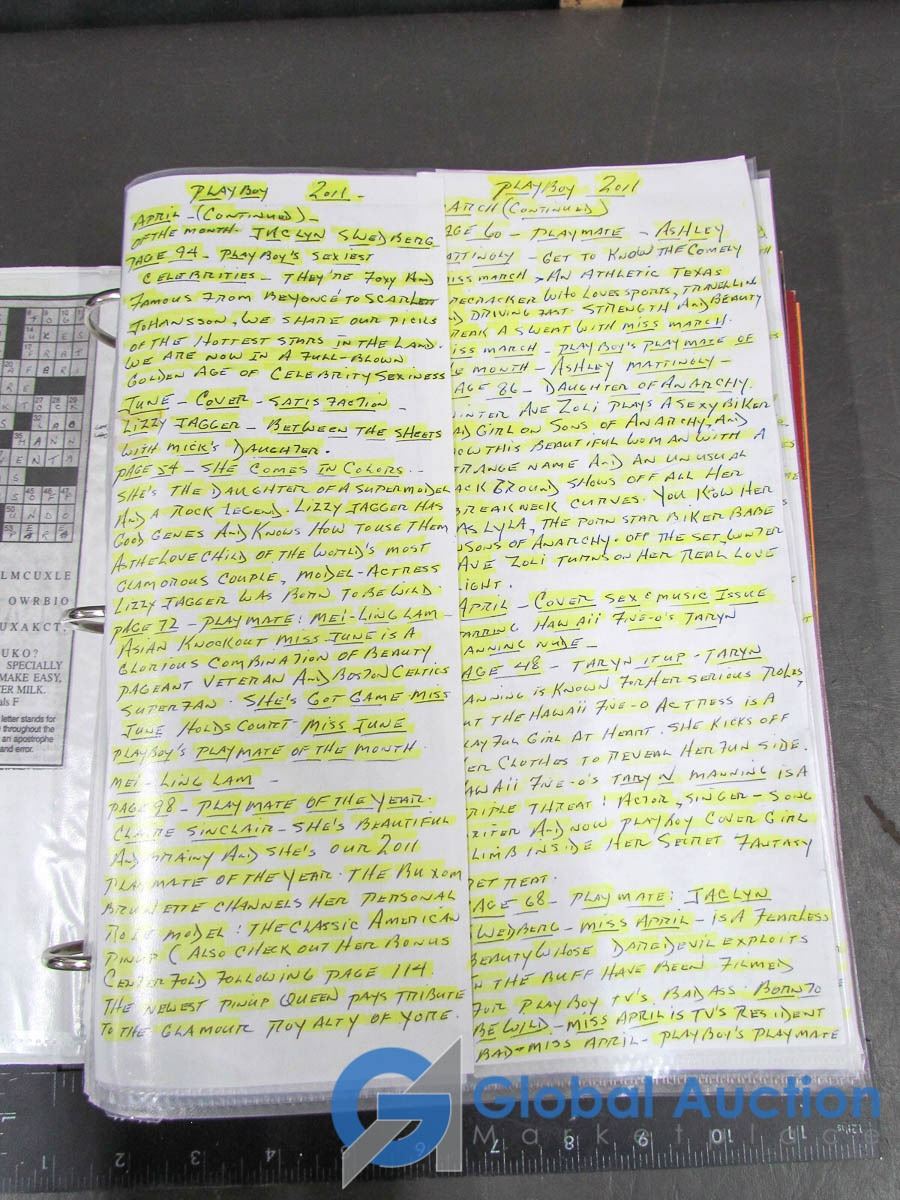 PLAYBOY 2011 -
APRIL - (CONTINUED) -
OF THE MONTH - JACLYN SWEDBERG
PAGE 94 - PLAYBOY'S SEXIEST
CELEBRITIES - THEY'RE FOXY AND
FAMOUS FROM BEYONCÉ TO SCARLETT
JOHANSSON, WE SHARE OUR PICKS
OF THE HOTTEST STARS IN THE LAND.
WE ARE NOW IN A FULL-BLOWN
GOLDEN AGE OF CELEBRITY SEXINESS
JUNE - COVER - SATISFACTION -
LIZZY JAGGER - BETWEEN THE SHEETS
WITH MICK'S DAUGHTER.
PAGE 54 - SHE COMES IN COLORS -
SHE'S THE DAUGHTER OF A SUPERMODEL
AND A ROCK LEGEND. LIZZY JAGGER HAS
GOOD GENES AND KNOWS HOW TO USE THEM
AS THE LOVE CHILD OF THE WORLD'S MOST
GLAMOROUS COUPLE, MODEL-ACTRESS
LIZZY JAGGER WAS BORN TO BE WILD.
PAGE 72 - PLAYMATE: MEI-LING LAM -
ASIAN KNOCKOUT MISS JUNE IS A
GLORIOUS COMBINATION OF BEAUTY
PAGEANT VETERAN AND BOSTON CELTICS
SUPERFAN. SHE'S GOT GAME - MISS
JUNE HOLDS COURT - MISS JUNE
PLAYBOY'S PLAYMATE OF THE MONTH.
MEI-LING LAM -
PAGE 98 - PLAYMATE OF THE YEAR.
CLAIRE SINCLAIR - SHE'S BEAUTIFUL
AND BRAINY AND SHE'S OUR 2011
PLAYMATE OF THE YEAR. THE BUXOM
BRUNETTE CHANNELS HER PERSONAL
ROLE MODEL: THE CLASSIC AMERICAN
PINUP (ALSO CHECK OUT HER BONUS
CENTERFOLD FOLLOWING PAGE 114.
THE NEWEST PINUP QUEEN PAYS TRIBUTE
TO THE GLAMOUR ROYALTY OF YORE.
PLAYBOY 2011
ARCH (CONTINUED)
AGE 60 - PLAYMATE - ASHLEY
ATTINGLY - GET TO KNOW THE COMELY
MISS MARCH > AN ATHLETIC TEXAS
RECRACKER WHO LOVES SPORTS, TRAVELLING
D DRIVING FAST. STRENGTH AND BEAUTY
REAK A SWEAT WITH MISS MARCH.
ISS MARCH - PLAYBOY'S PLAYMATE OF
E MONTH - ASHLEY MATTINGLY -
AGE 86 - DAUGHTER OF ANARCHY.
INTER AVE ZOLI PLAYS A SEXY BIKER
AD GIRL ON SONS OF ANARCHY, AND
OW THIS BEAUTIFUL WOMAN WITH A
TRANGE NAME AND AN UNUSUAL
ACKGROUND SHOWS OFF ALL HER
BREAKNECK CURVES. YOU KNOW HER
AS LYLA, THE PORN STAR BIKER BABE
SONS OF ANARCHY. OFF THE SET, WINTER
AVE ZOLI TURNS ON HER REAL LOVE
IGHT.
APRIL - COVER SEX & MUSIC ISSUE
ARRING HAWAII FIVE-O'S TARYN
ANNING NUDE -
AGE 48 - TARYN IT UP - TARYN
ANNING IS KNOWN FOR HER SERIOUS ROLES
UT THE HAWAII FIVE-O ACTRESS IS A
LAYFUL GIRL AT HEART. SHE KICKS OFF
ER CLOTHES TO REVEAL HER FUN SIDE.
AWAII FIVE-O'S TARYN MANNING IS A
RIPLE THREAT: ACTOR, SINGER-SONG
RITER AND NOW PLAYBOY COVER GIRL
LIMB INSIDE HER SECRET FANTASY
RETREAT.
AGE 68 - PLAYMATE: JACLYN
SWEDBERG - MISS APRIL - IS A FEARLESS
BEAUTY WHOSE DAREDEVIL EXPLOITS
N THE BUFF HAVE BEEN FILMED
FOR PLAYBOY TV'S BADASS. BORN TO
BE WILD - MISS APRIL IS TV'S RESIDENT
BAD - MISS APRIL - PLAYBOY'S PLAYMATE
LMCUXLE
OWRBIO
UXAKCT,
UKO?
SPECIALLY
MAKE EASY,
TER MILK.
als F
letter stands for
throughout the
an apostrophe
and error.
Global Auction
Marketplace
1 2 3 4 5 6 7 8 9 10 11